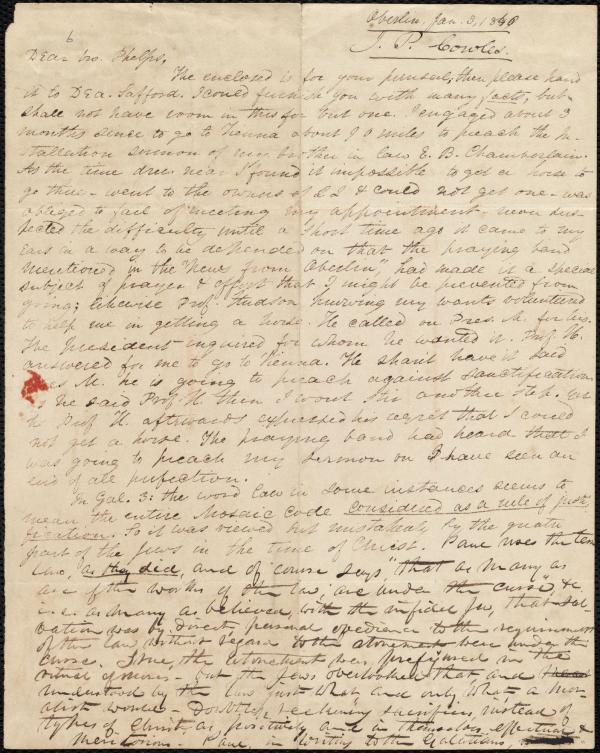 6
Oberlin, Jan. 3, 1840
J. P. Cowles.
Dear bro. Phelps,
The enclosed is for your perusal, then please hand
it to Dea. Safford. I could furnish you with many facts, but
shall not have room in this for but one. I engaged about 3
months since to go to Vienna about 70 miles to preach the in-
stallation sermon of my brother in law E. B. Chamberlain.
As the time drew near I found it impossible to get a horse to
go there - went to the owners of & could not get one - was
obliged to fail of meeting my appointment - never sus-
pected the difficulty until a short time ago it came to my
ears in a way to be depended on that the praying band
mentioned in the "News from Oberlin", had made it a special
subject of prayer & effort that I might be prevented from
going; likewise Prof. Hudson knowing my wants volunteered
to help me in getting a horse. He called on Pres. M. for his.
The President enquired for whom he wanted it. Prof. H.
answered for me to go to Vienna. He shan't have it said
Pres M. he is going to preach against sanctification.
is he said Prof. H. then I wont stir another step. Yet
the Prof H. afterwards expressed his regret that I could
not get a horse. The praying band had heard that I
was going to preach my sermon on I have seen an
end of all perfection.
In Gal. 3: the word law in some instances seems to
mean the entire Mosaic code considered as a rule of just-
ification. So it was viewed but mistakenly by the greater
part of the Jews in the time of Christ. Paul uses the term
law, as they did, and of course says, "that as many as
are of the works of the law, are under the curse", &
i.e. as many as believed, with the infidel Jew, that sal-
vation was by direct personal obedience to the requirements
of the law without regard to the atonement were under the
curse. True, the atonement was prefigured in the
ritual of Moses - but the Jews overlooked that and
understood by the law just what and only what a mor-
alist would - Doubtless, reckoning sacrifices, instead of
types of Christ, as positively and in themselves effectual &
meritorious. Paul, in writing to the Galatians